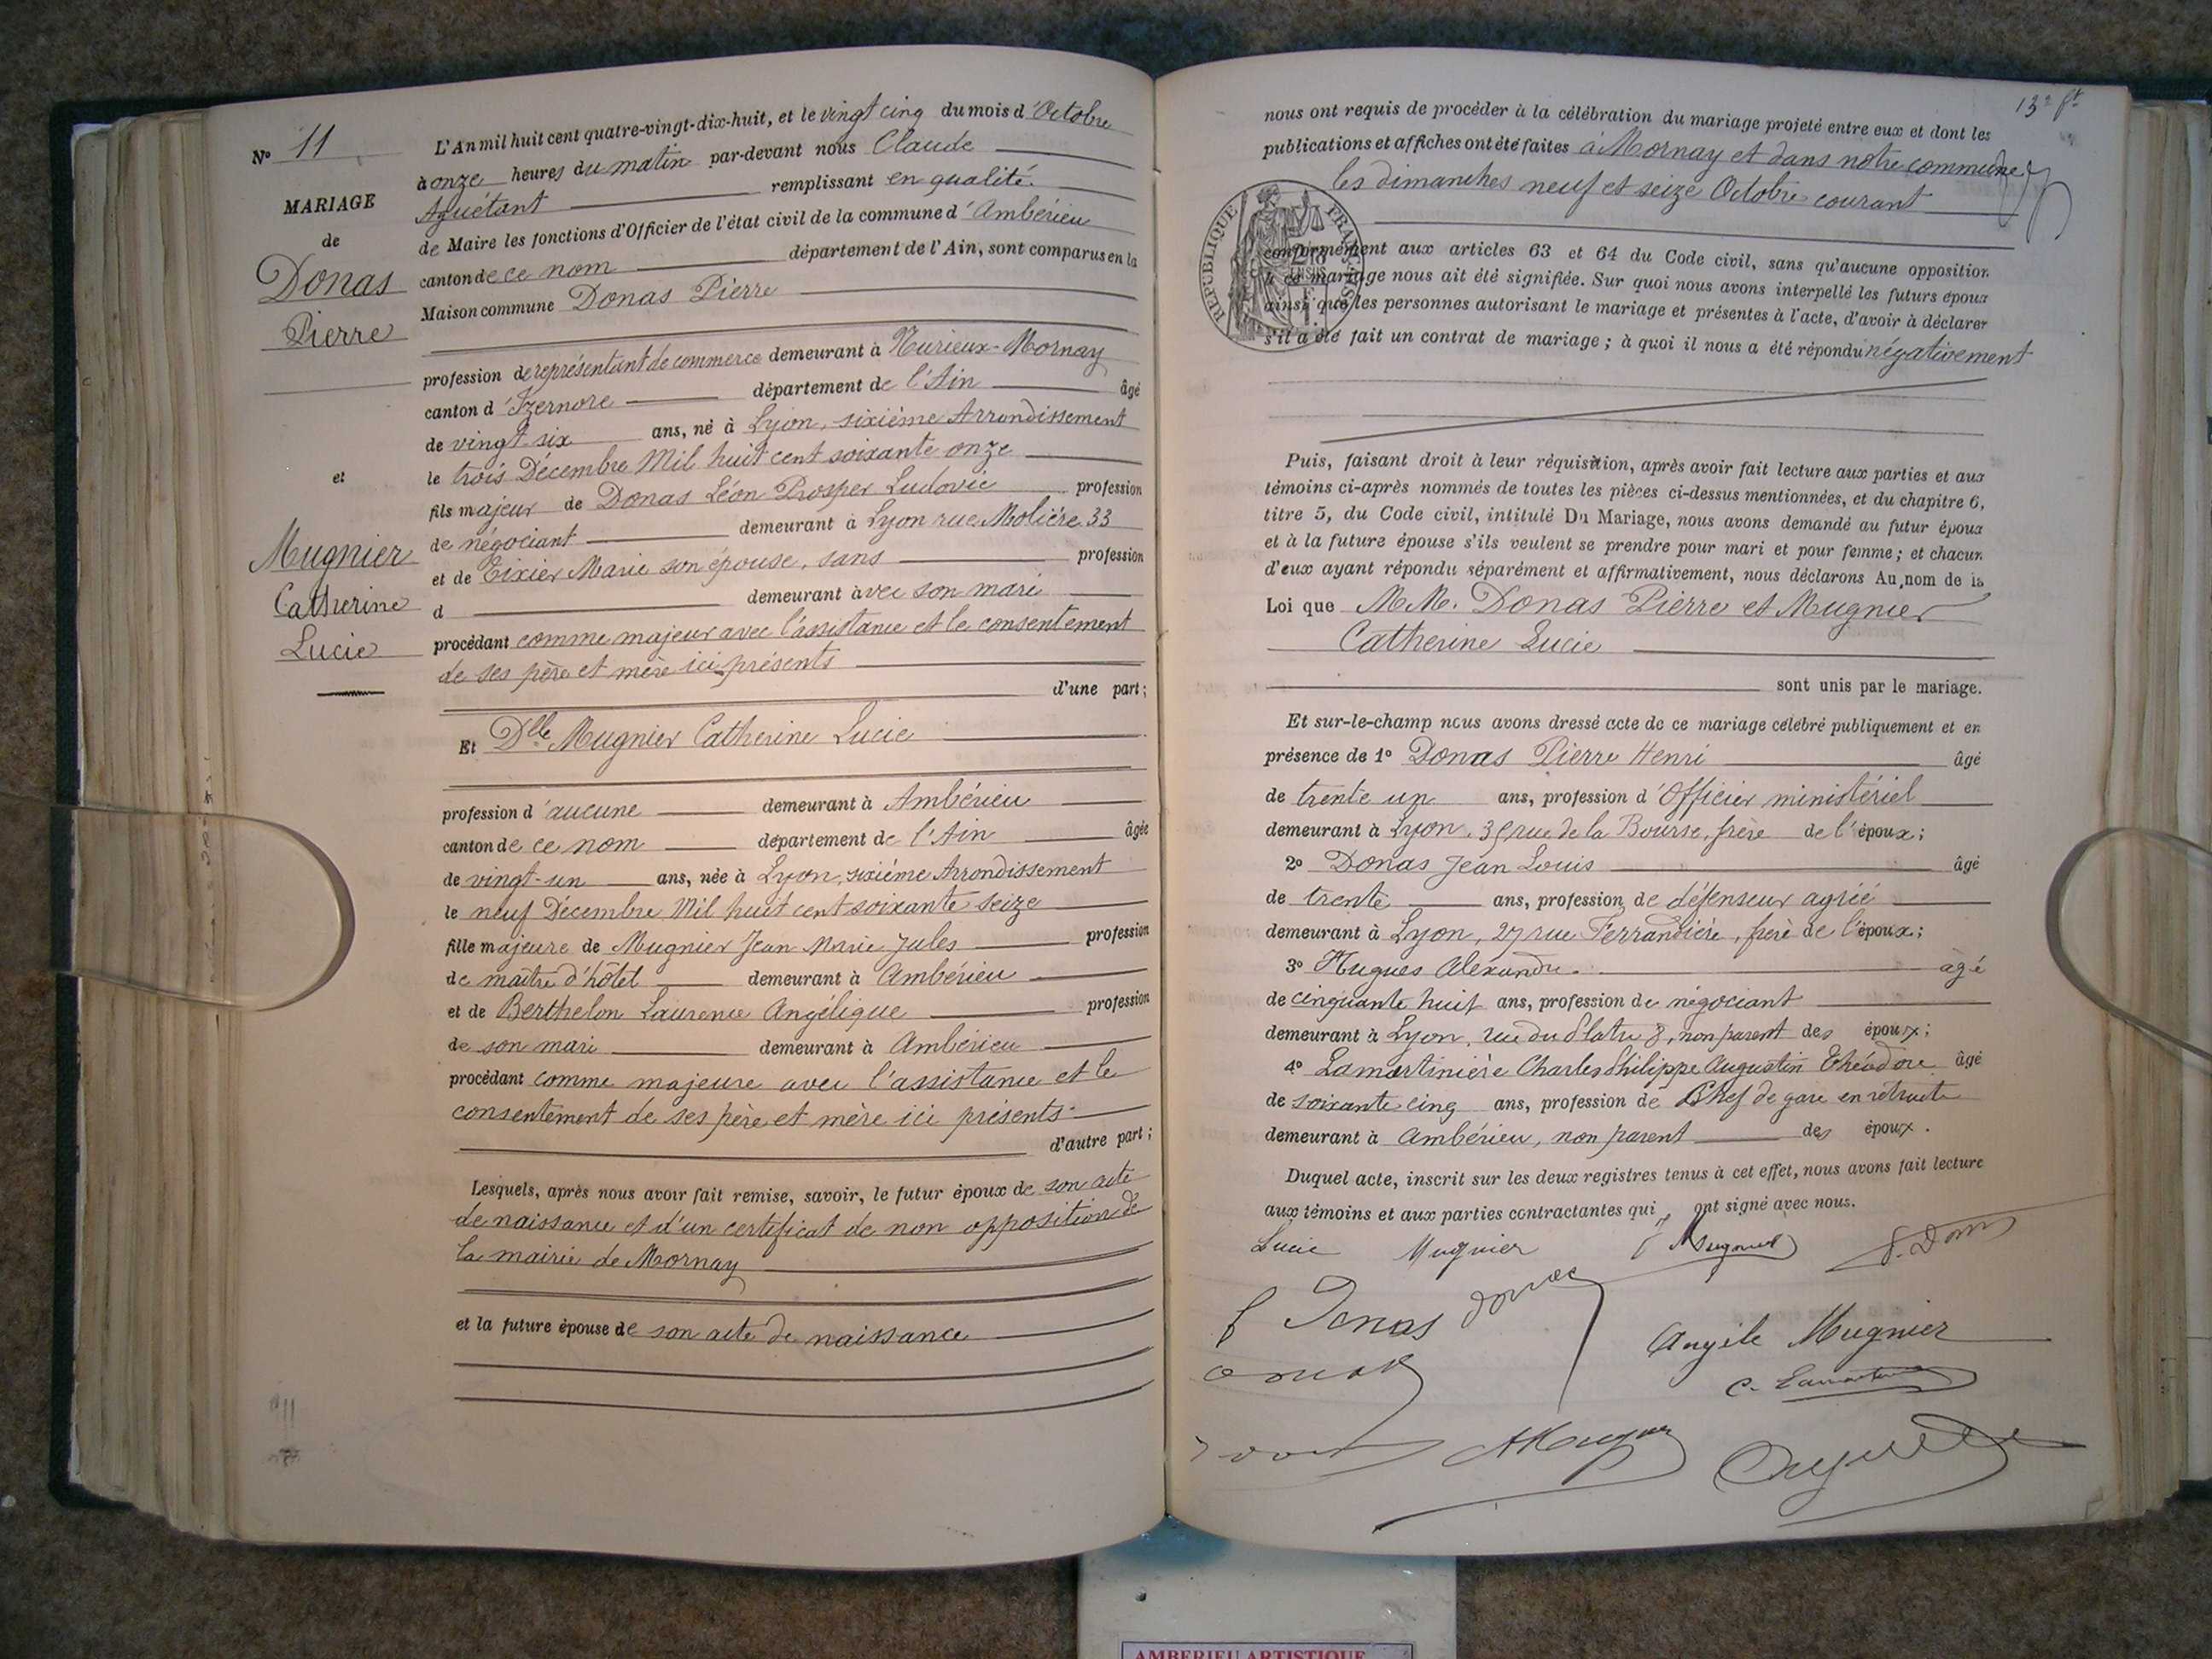 N° 11
MARIAGE
de
Donas
Pierre
et
Mugnier
Catherine
Lucie
L'An mil huit cent quatre-vingt-dix-huit, et le vingt cinq du mois d'Octobre
à onze heures du matin par-devant nous Claude
Aguétant remplissant en qualité
de Maire les fonctions d'Officier de l'état civil de la commune d'Ambérieu
canton de ce nom département de l'Ain, sont comparus en la
Maison commune Donas Pierre
profession de représentant de commerce demeurant à Nurieux-Mornay
canton d'Izernore département de l'Ain âgé
de vingt six ans, né à Lyon, sixième Arrondissement
le trois Décembre Mil huit cent soixante onze
fils majeur de Donas Léon Prosper Ludovic profession
de négociant demeurant à Lyon rue Molière 33
et de Tixier Marie son épouse, sans profession
d demeurant avec son mari
procédant comme majeur avec l'assistance et le consentement
de ses père et mère ici présents
d'une part;
Et Dlle Mugnier Catherine Lucie
profession d'aucune demeurant à Ambérieu
canton de ce nom département de l'Ain âgée
de vingt-un ans, née à Lyon, sixième Arrondissement
le neuf Décembre Mil huit cent soixante seize
fille majeure de Mugnier Jean Marie Jules profession
de maître d'hôtel demeurant à Ambérieu
et de Berthelon Laurence Angélique profession
de son mari demeurant à Ambérieu
procédant comme majeure avec l'assistance et le
consentement de ses père et mère ici présents
d'autre part;
Lesquels, après nous avoir fait remise, savoir, le futur époux de son acte
de naissance et d'un certificat de non opposition de
la mairie de Mornay
et la future épouse de son acte de naissance
13e ft
nous ont requis de procéder à la célébration du mariage projeté entre eux et dont les
publications et affiches ont été faites à Mornay et dans notre commune
les dimanches neuf et seize Octobre courant
RÉPUBLIQUE FRANÇAISE
conformément aux articles 63 et 64 du Code civil, sans qu'aucune opposition
à ce mariage nous ait été signifiée. Sur quoi nous avons interpellé les futurs époux
ainsi que les personnes autorisant le mariage et présentes à l'acte, d'avoir à déclarer
s'il a été fait un contrat de mariage; à quoi il nous a été répondu négativement
Puis, faisant droit à leur réquisition, après avoir fait lecture aux parties et aux
témoins ci-après nommés de toutes les pièces ci-dessus mentionnées, et du chapitre 6,
titre 5, du Code civil, intitulé Du Mariage, nous avons demandé au futur époux
et à la future épouse s'ils veulent se prendre pour mari et pour femme; et chacun
d'eux ayant répondu séparément et affirmativement, nous déclarons Au nom de la
Loi que MM. Donas Pierre et Mugnier
Catherine Lucie
sont unis par le mariage.
Et sur-le-champ nous avons dressé acte de ce mariage célébré publiquement et en
présence de 1° Donas Pierre Henri âgé
de trente un ans, profession d'Officier ministériel
demeurant à Lyon, 35 rue de la Bourse, frère de l'époux;
2° Donas Jean Louis âgé
de trente ans, profession de défenseur agréé
demeurant à Lyon, 27 rue Ferrandière, frère de l'époux;
3° Hugues Alexandre âgé
de cinquante huit ans, profession de négociant
demeurant à Lyon, rue du Platre 8, non parent des époux;
4° Lamartinière Charles Philippe Augustin Théodore âgé
de soixante cinq ans, profession de Chef de gare en retraite
demeurant à Ambérieu, non parent des époux.
Duquel acte, inscrit sur les deux registres tenus à cet effet, nous avons fait lecture
aux témoins et aux parties contractantes qui ont signé avec nous.
Lucie Mugnier J Mugnier P. Donas
Donas Donas
Angèle Mugnier
AMBERIEU ARTISTIQUE